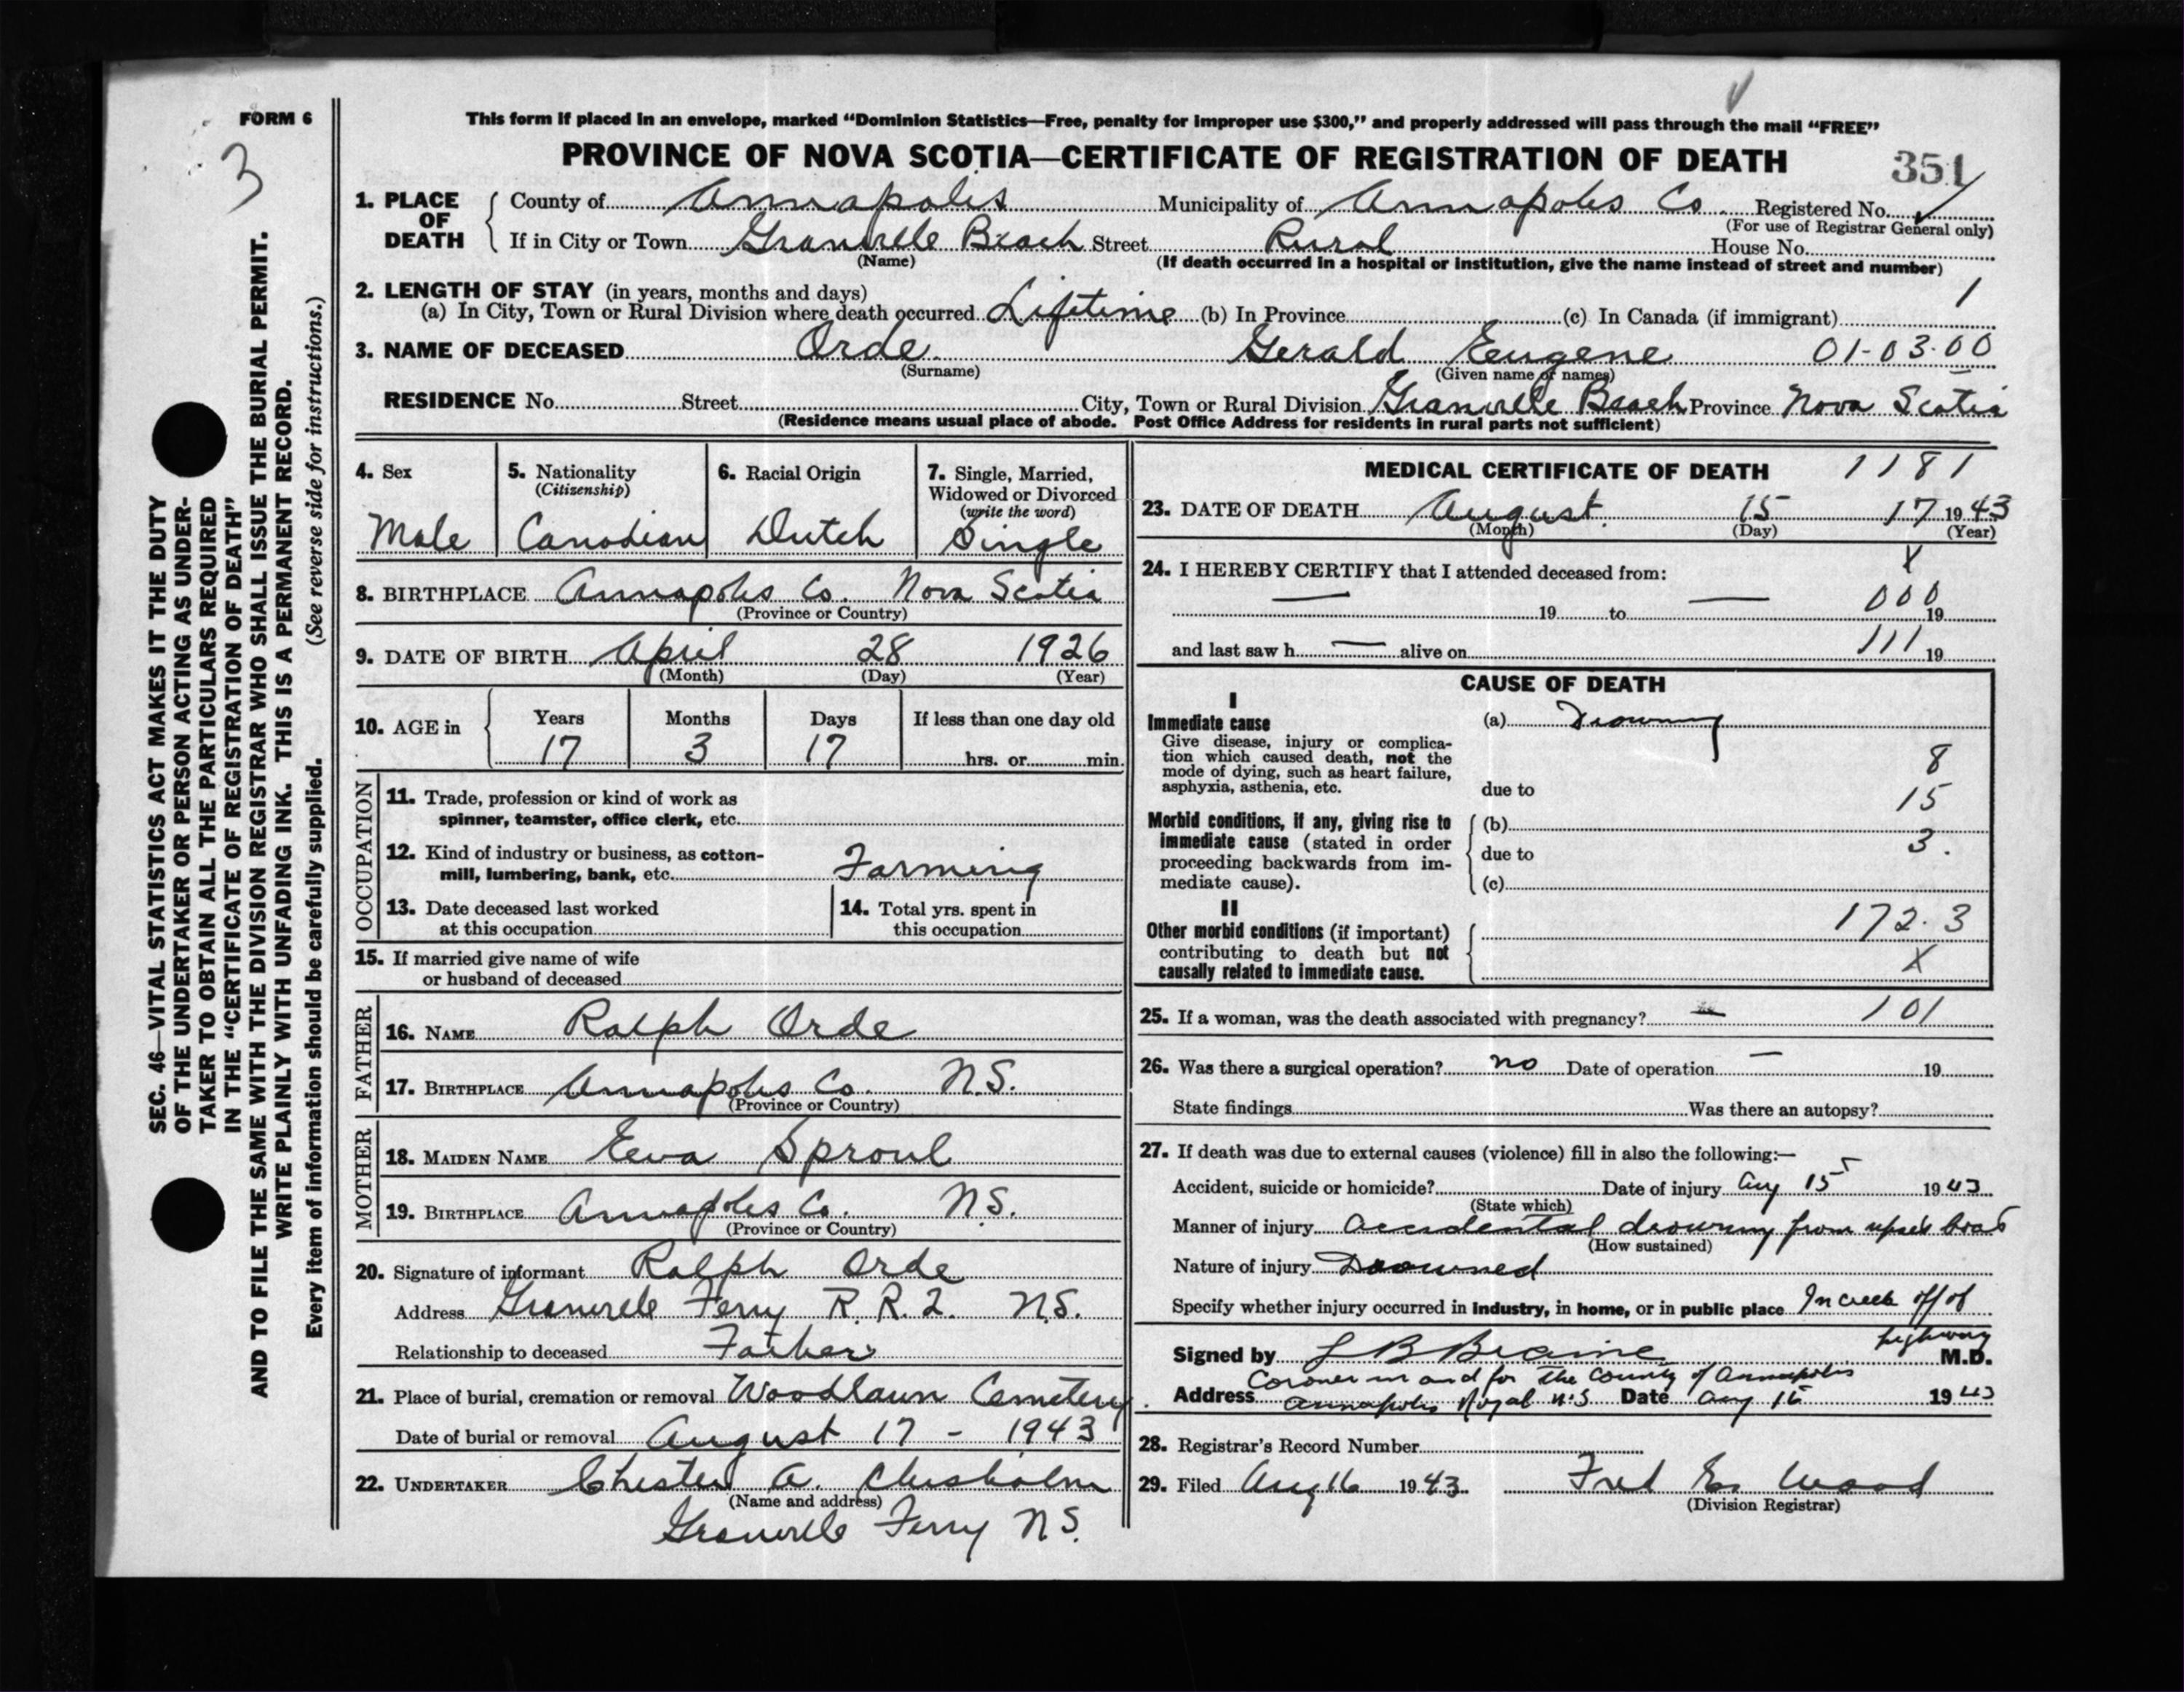 FORM 6
3
This form if placed in an envelope, marked “Dominion Statistics—Free, penalty for improper use $300,” and properly addressed will pass through the mail “FREE”
PROVINCE OF NOVA SCOTIA—CERTIFICATE OF REGISTRATION OF DEATH 351
1. PLACE OF DEATH County of Annapolis Municipality of Annapolis Co Registered No.
(For use of Registrar General only)
If in City or Town Granville Beach Street Rural House No.
(Name) (If death occurred in a hospital or institution, give the name instead of street and number)
2. LENGTH OF STAY (in years, months and days) 1
(a) In City, Town or Rural Division where death occurred Lifetime (b) In Province (c) In Canada (if immigrant)
3. NAME OF DECEASED Orde. Gerald Eugene 01-03-00
(Surname) (Given name or names)
RESIDENCE No. Street City, Town or Rural Division Granville Beach Province Nova Scotia
(Residence means usual place of abode. Post Office Address for residents in rural parts not sufficient)
4. Sex Male
5. Nationality (Citizenship) Canadian
6. Racial Origin Dutch
7. Single, Married, Widowed or Divorced (write the word) Single
8. BIRTHPLACE Annapolis Co. Nova Scotia
(Province or Country)
9. DATE OF BIRTH April 28 1926
(Month) (Day) (Year)
10. AGE in Years Months Days If less than one day old
17 3 17 hrs. or min.
OCCUPATION
11. Trade, profession or kind of work as
spinner, teamster, office clerk, etc.
12. Kind of industry or business, as cotton-
mill, lumbering, bank, etc. Farming
13. Date deceased last worked
at this occupation
14. Total yrs. spent in
this occupation
15. If married give name of wife
or husband of deceased
FATHER
16. NAME Ralph Orde
17. BIRTHPLACE Annapolis Co. N.S.
(Province or Country)
MOTHER
18. MAIDEN NAME Eva Sproul
19. BIRTHPLACE Annapolis Co. N.S.
(Province or Country)
20. Signature of informant Ralph Orde
Address Granville Ferry R.R.2. N.S.
Relationship to deceased Father
21. Place of burial, cremation or removal Woodlawn Cemetery.
Date of burial or removal August 17 - 1943
22. UNDERTAKER Chester A. Chisholm
(Name and address)
Granville Ferry N.S.
MEDICAL CERTIFICATE OF DEATH 1181
23. DATE OF DEATH August 15 17 1943
(Month) (Day) (Year)
X
24. I HEREBY CERTIFY that I attended deceased from:
— 19 to — 000 19
and last saw h — alive on 111 19
CAUSE OF DEATH
I
Immediate cause (a) Drowning
Give disease, injury or complica-
tion which caused death, not the
mode of dying, such as heart failure,
asphyxia, asthenia, etc.
8
due to 15
Morbid conditions, if any, giving rise to
immediate cause (stated in order
proceeding backwards from im-
mediate cause).
(b)
due to 3.
(c)
II
Other morbid conditions (if important)
contributing to death but not
causally related to immediate cause.
172.3
X
25. If a woman, was the death associated with pregnancy? 101
26. Was there a surgical operation? no Date of operation — 19
State findings Was there an autopsy?
27. If death was due to external causes (violence) fill in also the following:—
Accident, suicide or homicide? Date of injury Aug 15 1943
(State which)
Manner of injury Accidental drowning from upset boat
(How sustained)
Nature of injury Drowned
Specify whether injury occurred in industry, in home, or in public place In creek off of
highway
Signed by L B Braine M.D.
Coroner in and for the County of Annapolis
Address Annapolis Royal N.S Date Aug 15 1943
28. Registrar's Record Number
29. Filed Aug 16 1943 Wood
(Division Registrar)
SEC. 46—VITAL STATISTICS ACT MAKES IT THE DUTY
OF THE UNDERTAKER OR PERSON ACTING AS UNDER-
TAKER TO OBTAIN ALL THE PARTICULARS REQUIRED
IN THE “CERTIFICATE OF REGISTRATION OF DEATH”
AND TO FILE THE SAME WITH THE DIVISION REGISTRAR WHO SHALL ISSUE THE BURIAL PERMIT.
WRITE PLAINLY WITH UNFADING INK. THIS IS A PERMANENT RECORD.
Every item of information should be carefully supplied. (See reverse side for instructions.)